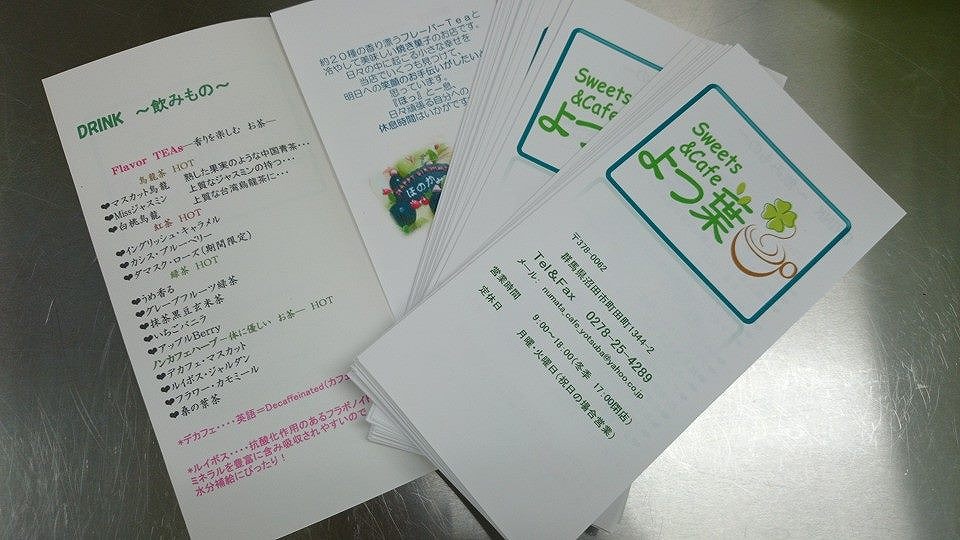 DRINK ～飲みもの～
Flavor TEAs―香りを楽しむ お茶―
烏龍茶 HOT
❤マスカット烏龍 熟した果実のような中国青茶・・・
❤Missジャスミン 上質なジャスミンの持つ・・・
❤白桃烏龍 上質な台湾烏龍茶に・・・
紅茶 HOT
❤イングリッシュ・キャラメル
❤カシス・ブルーベリー
❤ダマスク・ローズ(期間限定)
緑茶 HOT
❤うめ香る
❤グレープフルーツ緑茶
❤抹茶黒豆玄米茶
❤いちごバニラ
❤アップルBerry
ノンカフェハーブ―体に優しい お茶― HOT
❤デカフェ・マスカット
❤ルイボス・ジャルダン
❤フラワー・カモミール
❤桑の葉茶
*デカフェ・・・・英語=Decaffeinated(カフェ
*ルイボス・・・・抗酸化作用のあるフラボノイ
ミネラルを豊富に含み吸収されやすいので
水分補給にぴったり！
約２０種の香り漂うフレーバーＴｅａと
冷やして美味しい焼き菓子のお店です。
日々の中に起こる小さな幸せを
当店でいくつも見つけて、
明日への笑顔のお手伝いがしたいと
思っています。
『ほっ』と一息、
日々頑張る自分への
休息時間はいかがです
ほのか
Sweets
&Cafe
よつ
Sweets
&Cafe
よつ葉
〒378-0062
群馬県沼田市町田町1344-2
Tel&Fax 0278-25-4289
メール: numata_cafe_yotsuba@yahoo.co.jp
営業時間 9:00～18:00(冬季 17:00閉店)
定休日 月曜・火曜日(祝日の場合営業)